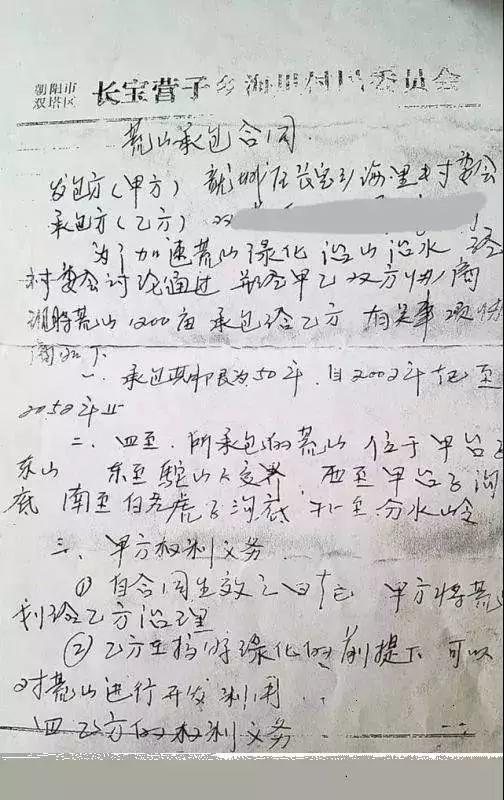 朝阳市
双塔区
长宝营子乡海里村村民委员会
荒山承包合同
发包方(甲方) 龙城区长宝乡海里村村委会
承包方(乙方) 双
为了加速荒山绿化治山治水 经
村委会讨论通过 并经甲乙双方协商
现将荒山1200亩承包给乙方 有关事项协
商如下
一、承包期限为50年.自2002年起至
2052年止
二、四至.所承包的荒山 位于甲台子
东山 东至 山 交界 西至甲台子沟
底 南至白老虎子沟底 北至分水岭
三、甲方权利义务
① 自合同生效之日起 甲方将荒山
划给乙方治理
② 乙方在搞好绿化的前提下 可以
对荒山进行开发利用
四 乙方的权利义务